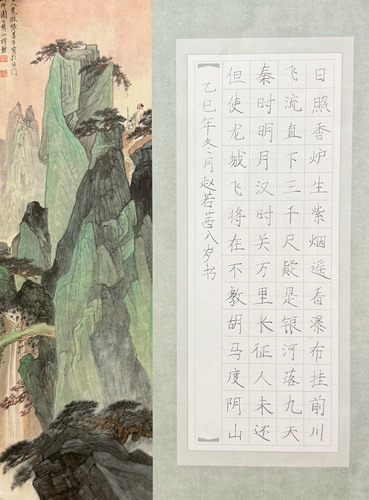 日照香炉生紫烟遥看瀑布挂前川
飞流直下三千尺疑是银河落九天
秦时明月汉时关万里长征人未还
但使龙城飞将在不教胡马度阴山
【乙巳年冬月赵若茜八岁书】